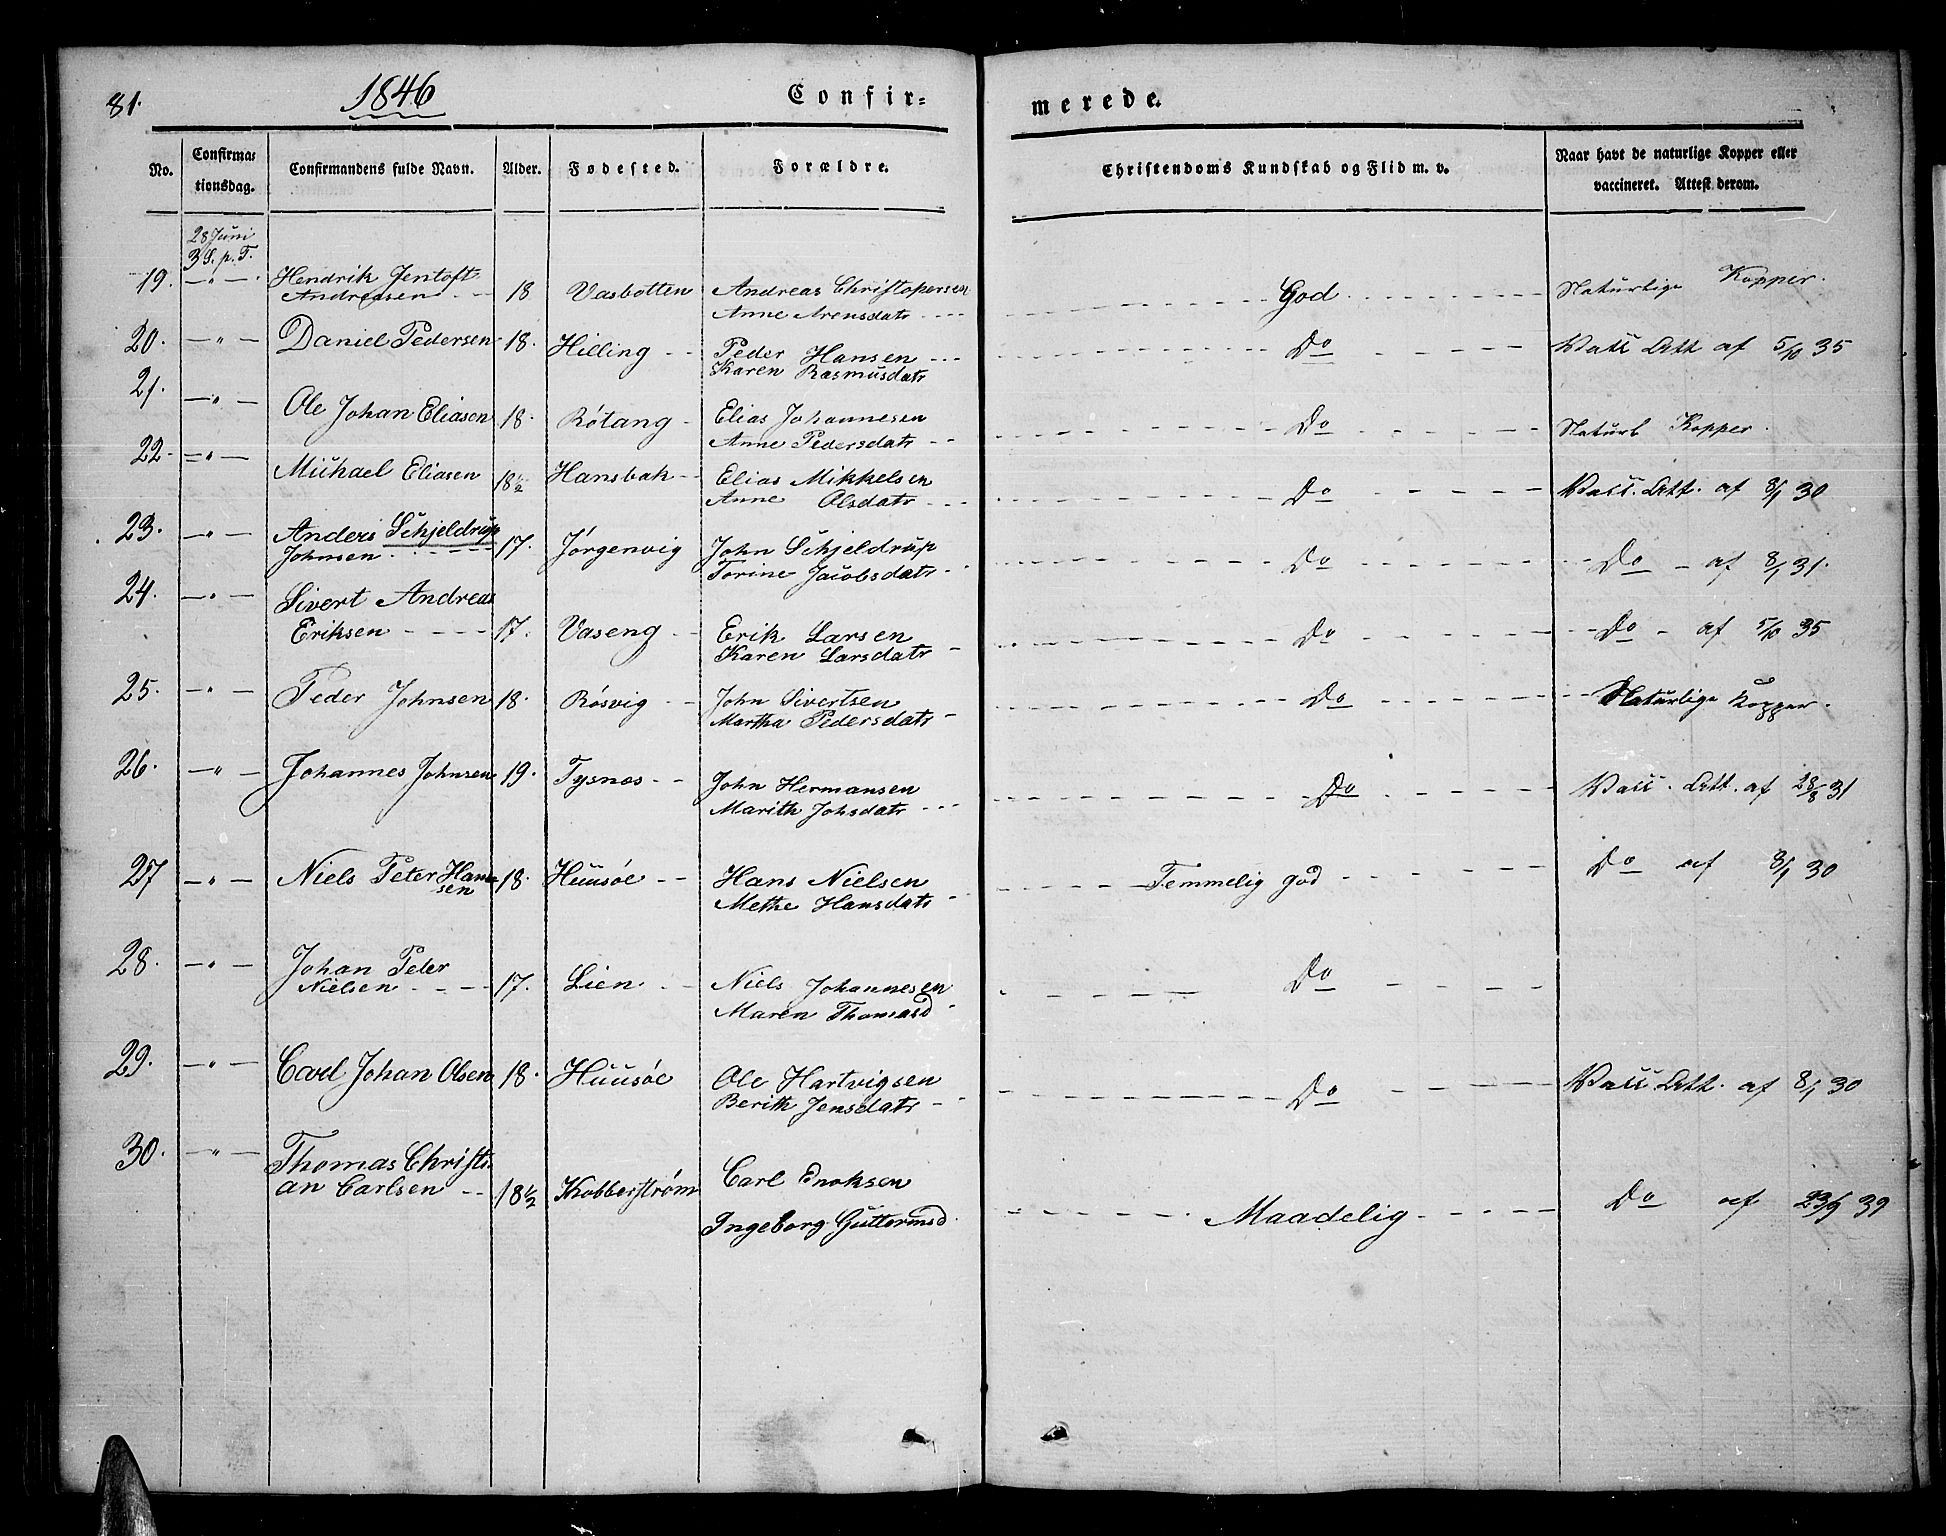 81. 1846 Confir= merede.
No. Confirma= tionsdag. Confirmandens fulde Navn. Alder. Fødested. Forældre. Christendoms Kundskab og Flid m. v. Naar havt de naturlige Kopper eller vaccineret. Attest derom.
28 Juni
3 S. p. T.
19. -"- Hendrik Jentoft 18 Vasbotten Andreas Christopersen God Naturlige Kopper.
Andreasen Anne Arensdatr
20. -"- Daniel Pedersen 18. Hilling Peder Hansen Do Vacc Att af 5/10 35
Karen Rasmusdatr
21. -"- Ole Johan Eliasen 18. Røtang Elias Johannesen Do Naturl Kopper.
Anne Pedersdatr
22. -"- Michael Eliasen 18 1/2 Hansbak Elias Mikkelsen Do Vacc. Att. af 8/1 30
Anne Olsdatr
23. -"- Anders Schjeldrup 17. Jørgenvig John Schjeldrup Do Do af 8/1 31.
Johnsen Torine Jacobsdatr
24. -"- Sivert Andreas
Eriksen 17. Vaseng Erik Larsen Do Do af 5/10 35
Karen Larsdatr
25. -"- Peder Johnsen 18. Røsvig John Sivertsen Do Naturlige Kopper.
Martha Pedersdatr
26. -"- Johannes Johnsen 19. Tysnæs John Hermansen Do Vacc. Att. af 28/8 31
Marith Johsdatr
27 -"- Niels Peter Han= 18. Huusøe Hans Nielsen Temmelig god Do af 8/1 30
sen Methe Hansdatr
28. -"- Johan Peter
Nielsen 17. Lien Niels Johannesen Do
Maren Thomasd
29. -"- Carl Johan Olsen 18. Huusøe Ole Hartvigsen Do Vacc. Att. af 8/1 30
Berith Jensdatr
30. -"- Thomas Christi=
an Carlsen 18 1/2 Kobberstrøm Carl Enoksen Maadelig Do af 23/9 39
Ingeborg Guttormsd.